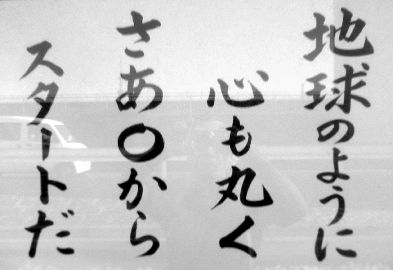 地球のように
心も丸く
さあ〇から
スタートだ